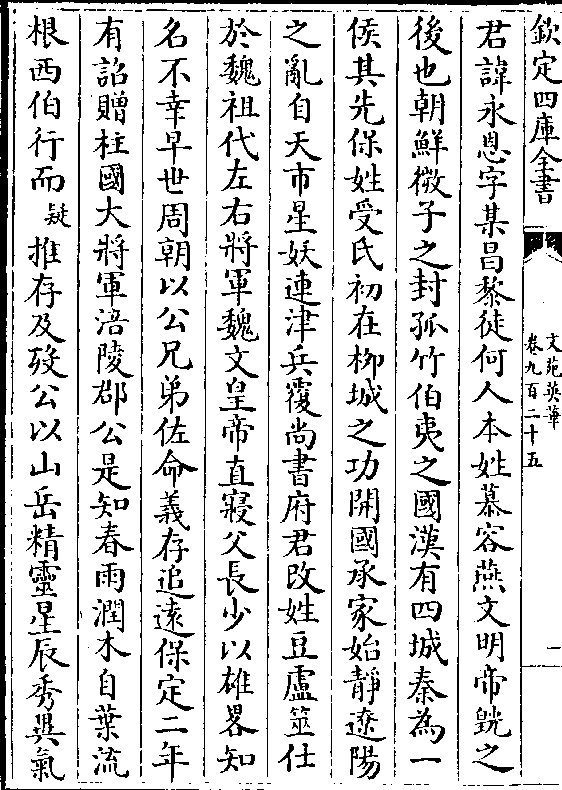 欽定四庫全書
文苑英華
卷九百二十五
一
君諱永恩字某昌黎徒何人本姓慕容燕文明帝皝之
後也朝鮮微子之封孤竹伯夷之國漢有四城秦為一
侯其先保姓受氏初在柳城之功開國承家始靜遼陽
之亂自天市星妖連津兵覆尚書府君改姓豆盧筮仕
於魏祖代左右將軍魏文皇帝直寢父長少以雄畧知
名不幸早世周朝以公兄弟佐命義存追遠保定二年
有詔贈柱國大將軍涪陵郡公是知春雨潤木自葉流
根西伯行而疑推存及歿公以山岳精靈星辰秀異氣